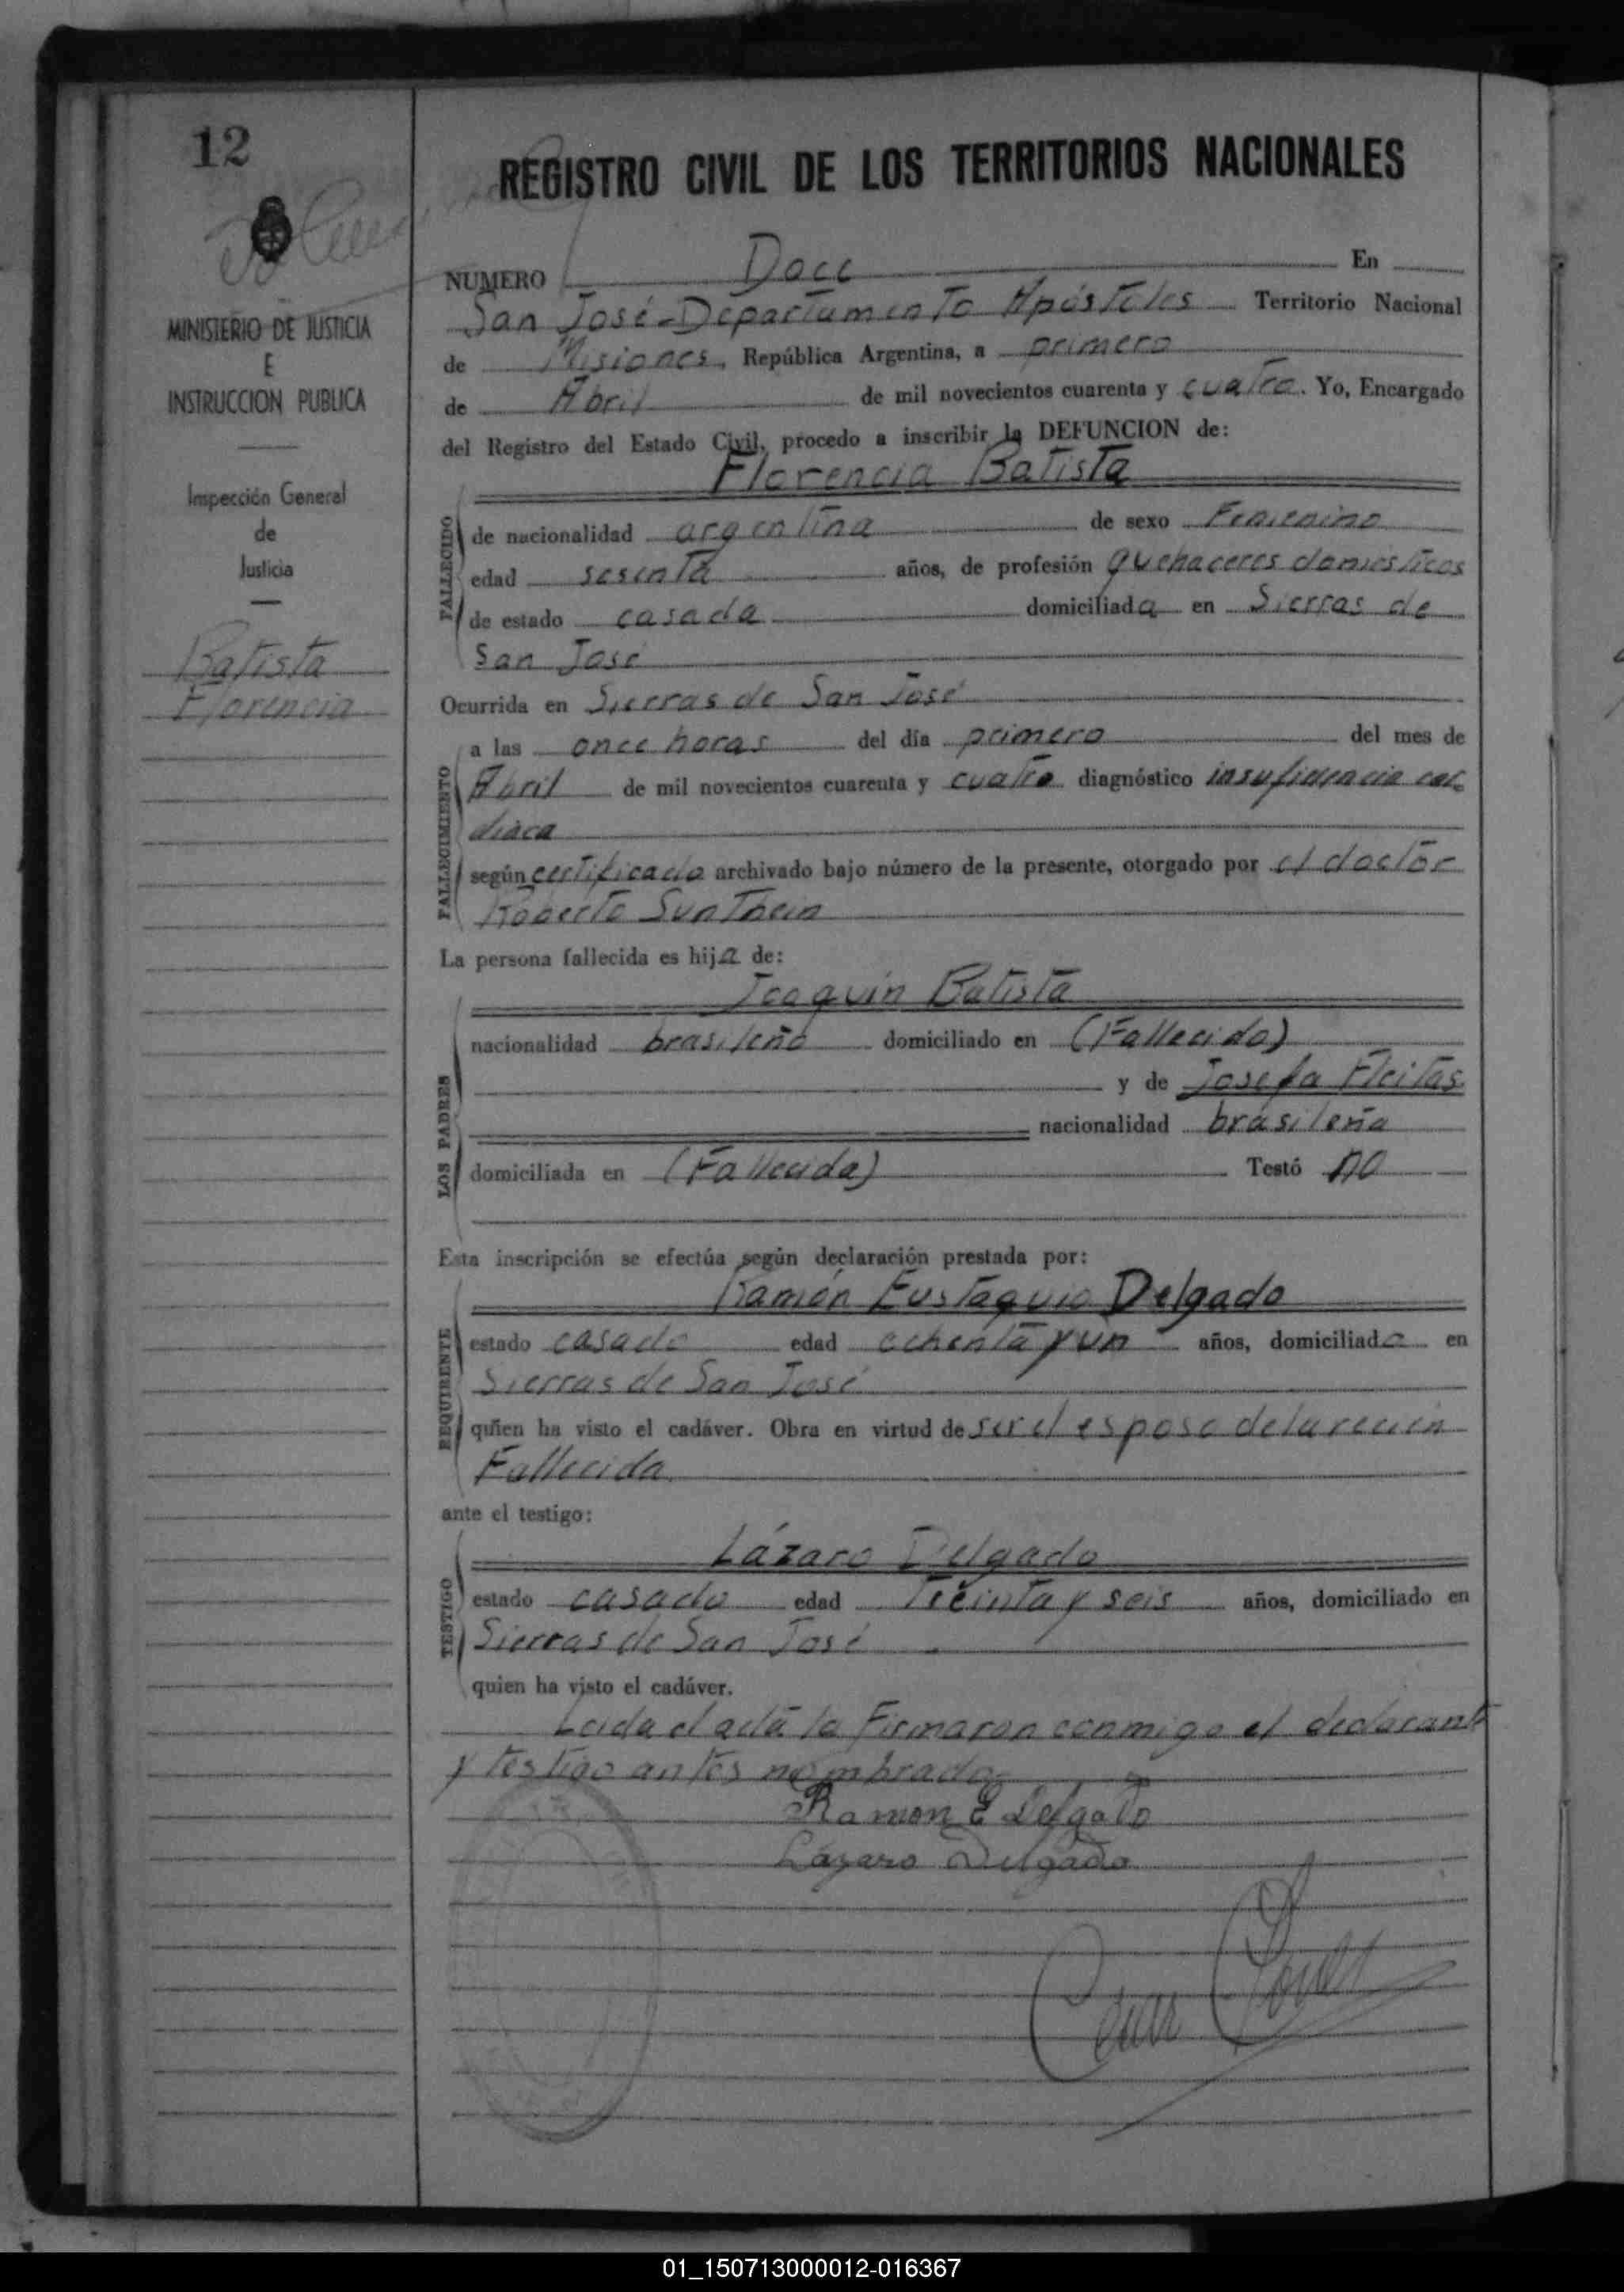 12
REGISTRO CIVIL DE LOS TERRITORIOS NACIONALES
MINISTERIO DE JUSTICIA
E
INSTRUCCION PUBLICA
Inspección General
de
Justicia
Batista
Florencia
NUMERO Doce En
San José-Departamento Apóstoles Territorio Nacional
de Misiones, República Argentina, a primero
de Abril de mil novecientos cuarenta y cuatro. Yo, Encargado
del Registro del Estado Civil, procedo a inscribir la DEFUNCION de:
Florencia Batista
FALLECIDO
de nacionalidad argentina de sexo Femenino
edad sesenta años, de profesión quehaceres domésticos
de estado casada domiciliada en Sierras de
San José
Ocurrida en Sierras de San José
FALLECIMIENTO
a las once horas del día primero del mes de
Abril de mil novecientos cuarenta y cuatro diagnóstico insuficiencia car-
díaca
según certificado archivado bajo número de la presente, otorgado por el doctor
Roberto Sunthein
La persona fallecida es hija de:
Joaquín Batista
LOS PADRES
nacionalidad brasileño domiciliado en (Fallecido)
y de Josefa Fleitas
nacionalidad brasileña
domiciliada en (Fallecida) Testó no
Esta inscripción se efectúa según declaración prestada por:
Ramón Eustaquio Delgado
REQUIRENTE
estado casado edad ochenta y un años, domiciliado en
Sierras de San José
quien ha visto el cadáver. Obra en virtud de ser el esposo de la recién
Fallecida
ante el testigo:
Lázaro Delgado
TESTIGO
estado casado edad treinta y seis años, domiciliado en
Sierras de San José
quien ha visto el cadáver.
Leida el acta la Firmaron conmigo el declarante
y testigo antes nombrado
Ramon E Delgado
Lázaro Delgado
01_150713000012-016367